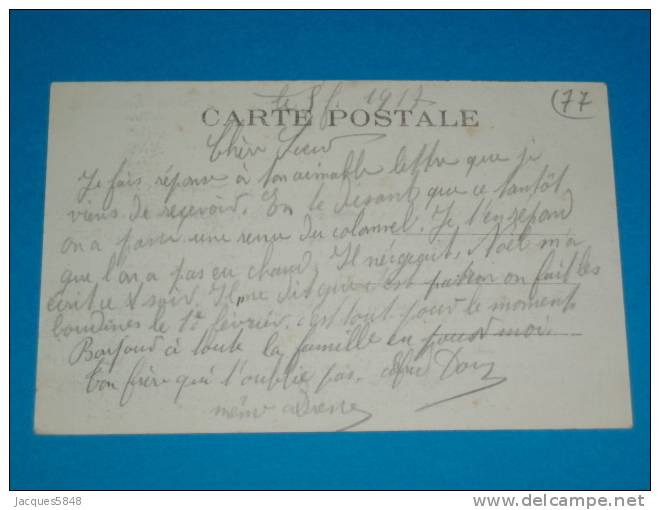 le 8 f. 1917
(77
CARTE POSTALE
Chère Sœur
Je fais réponse à ton aimable lettre que je
viens de recevoir. En te disant que ce tantôt
on a passé une revue du colonnel. Je t'en répond
que l'on a pas eu chaud. Il neigeait. Noël m'a
écrit ce soir. Il me dit que c'est on fait les
boudines le 1er février. c'est tout pour le moment
Bonjour à toute la famelle en pour moi.
Ton frère qui t'oublie pas.
même adresse
Jacques5848
delcampe.net